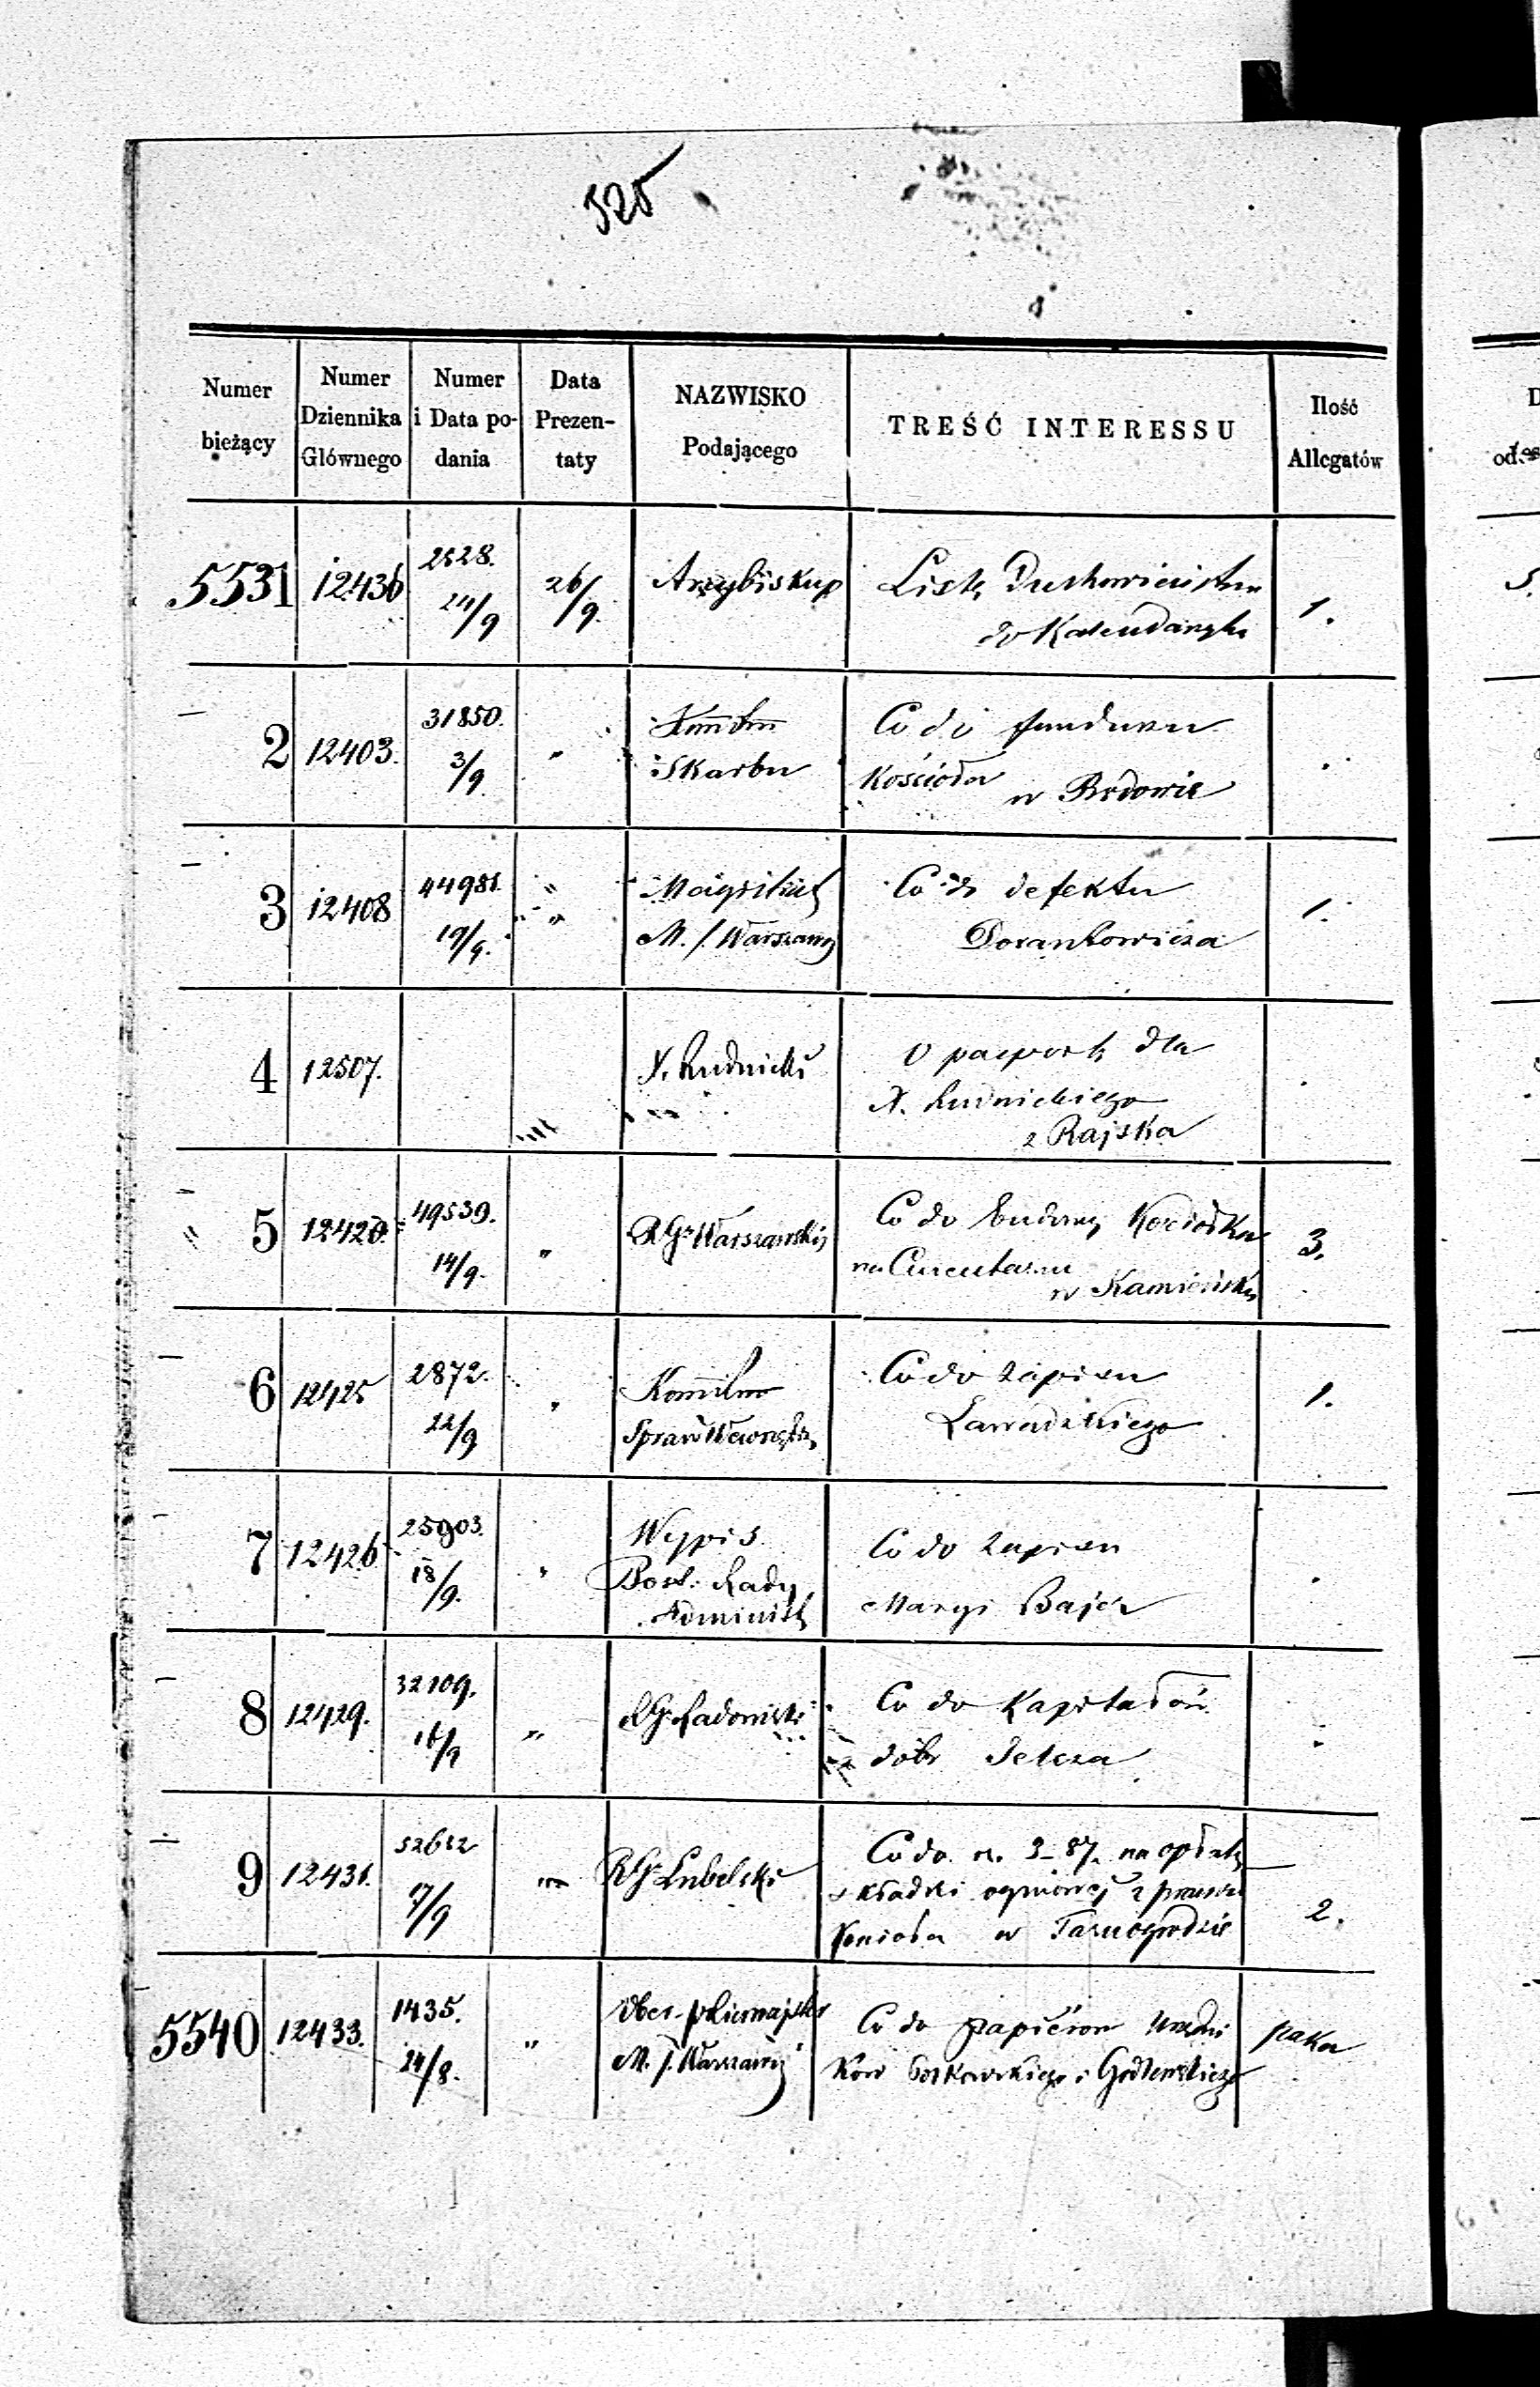 325
Numer bieżący | Numer Dziennika Głównego | Numer i Data podania | Data Prezentaty | NAZWISKO Podającego | TREŚĆ INTERESSU | Ilość Allegatów
5531 12436 2528. 24/9 26/9 Arcybiskup Listę Duchowieństwa
do Kalendarzyka 1.
2 12403. 31850. 3/9 " Skarbu Co do funduszu
Kościoła w Brdowie
3 12408 44981. 19/9. " Magistrat Co do defektu
M. S. Warszawy Dorantowicza 1.
4 12507. X. Rudnicki O paszport dla
X. Rudnickiego
z Rajska
5 12420. 49539. 14/9. " RG. Warszawski Co do budowy Kościołka
na Cmentarzu
w Kamieńsku 3.
6 12425 2872. 22/9 " Co do zapisu
Spraw Wewnętrz. Zawadzkiego 1.
7 12426 25903. 18/9. " Wypis Co do zapisu
Post. Rady
Administ. Maryi Bajer
8 12429. 32109. 16/9 " RG. Radomski Co do Kapitałów
dóbr
9 12431. 52652 17/9 " RG. Lubelski Co do rs. 3-87. na opłatę
składki ogniowej z
w Tarnogrodzie 2.
5540 12433. 1435. 24/8. " Ober-policmajster Co do papierów Urzędni
M. S. Warszawy ków i Godlewskiego paka